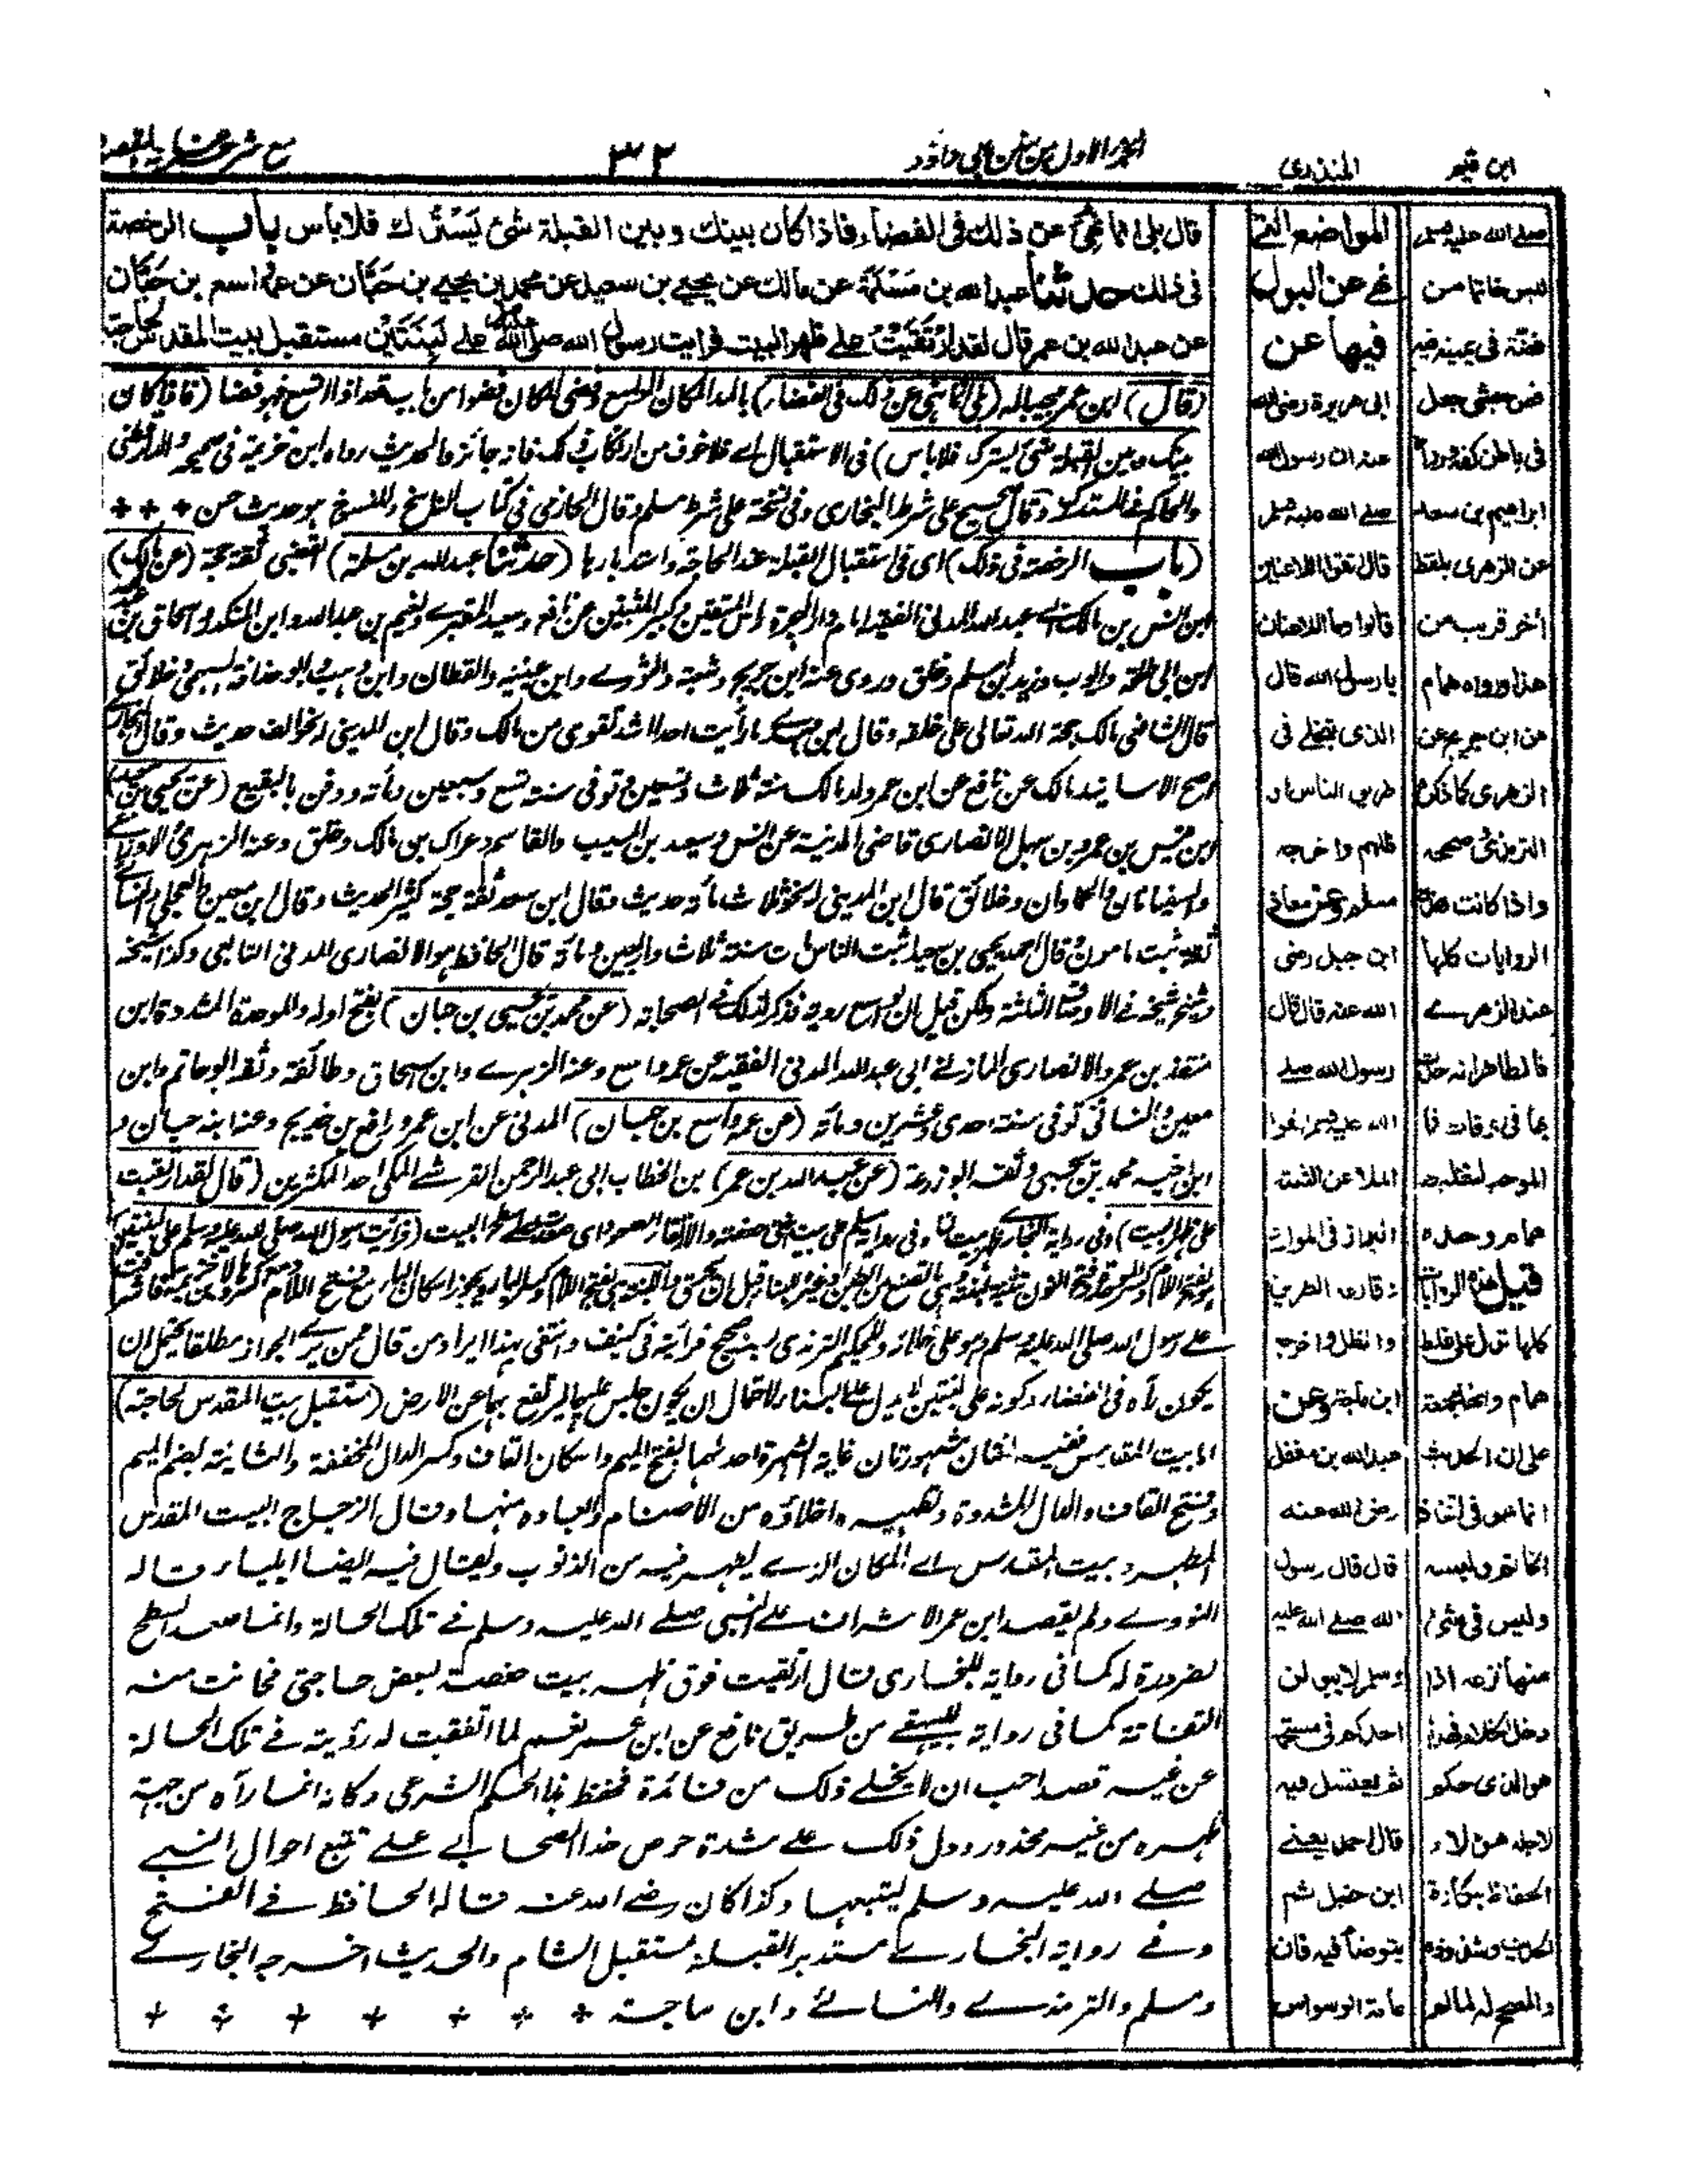 ابن قيم
المنذرى
الجزء الاول من سنن ابى داؤد
٣٢
مع شرحه غاية المقصود
قال بلى انما نُهِىَ عن ذلك فى الفضاء فاذا كان بينك وبين القبلة شئ يَسْتُرُك فلا بأس باب الرخصة
فى ذلك حدثنا عبد الله بن مَسْلَمَة عن مالك عن يحيى بن سعيد عن محمد بن يحيى بن حَبَّان عن عمه واسع بن حَبَّان
عن عبد الله بن عمر قال لقد ارْتَقَيْتُ على ظهر البيت فرايت رسول الله صلى الله على لَبِنَتَيْن مستقبل بيت المقدس لحاجته
(قال) ابن عمر مجيباله (بلى انما نهى عن ذلك فى الفضاء) بالمد المكان الواسع وفضى المكان فضوا من باب قعد اذا اتسع فهو فضا (فاذا كان
بينك وبين القبلة شئ يسترك فلا بأس) فى الاستقبال اے فلا خوف من ارتكاب ذلك فانه جائز والحديث رواه ابن خزيمة فى صحيحه والدارقطنى
والحاكم فى المستدرك وقال صحيح على شرط البخارى وفى نسخة على شرط مسلم وقال الحازمى فى كتاب الناسخ والمنسوخ هو حديث حسن
(باب الرخصة فى ذلك) اى فى استقبال القبلة عند الحاجة واستدبارها (حدثنا عبد الله بن مسلمة) القعنبى ثقة حجة (عن مالك)
ابن انس بن مالك ابى عبد الله المدنى الفقيه امام دار الهجرة رأس المتقين وكبير المثبتين عن نافع وسعيد المقبرى ونعيم بن عبد الله وابن المنكدر واسحاق بن عبد الله
ابن ابى طلحة وايوب وزيد بن اسلم وخلق وروى عنه ابن جريج وشعبة والثورے وابن عيينة والقطان وابن وهب وابو حذافة السهمى وخلائق
قال الشافعى مالك حجة الله تعالى على خلقه وقال ابن مهدے ما رأيت احدا اشد تقوى من مالك وقال ابن المدينى له نحو الف حديث وقال البخارے
اصح الاسانيد مالك عن نافع عن ابن عمر ولد مالك سنة ثلاث وتسعين وتوفى سنة تسع وسبعين ومأته ودفن بالبقيع (عن يحيى بن سعيد)
ابن قيس بن عمرو بن سهل الانصارى قاضى المدينة عن انس وسعيد بن المسيب والقاسم وعراك بن مالك وخلق وعنه الزهرى والاوزاعے
والسفيانان والحمادان وخلائق قال ابن المدينى له نحو ثلاث مأته حديث وقال ابن سعد ثقة حجة كثير الحديث وقال ابن معين والعجلى والنسائے
ثقة ثبت مامون وقال احمد يحيى بن سعيد اثبت الناس مات سنة ثلاث واربعين ومأته قال الحافظ هو الانصارى المدنى التابعى وكذا شيخه
وشيخ شيخه فى الاوصاف الثلثة ولكن قيل ان لواسع روية فذكر لذلك فى الصحابة (عن محمد بن يحيى بن حبان) بفتح اوله والموحدة المشددة ابن
منقذ بن عمرو الانصارى المازنى ابى عبد الله المدنى الفقيه عن عمه واسع وعنه الزهرے وابن اسحاق وطائفة وثقه ابو حاتم وابن
معين والنسائى توفى سنة احدى وعشرين ومأته (عن عمه واسع بن حبان) المدنى عن ابن عمر ورافع بن خديج وعنه ابنه حبان و
ابن اخيه محمد بن يحيى وثقه ابو زرعة (عن عبد الله بن عمر) بن الخطاب ابى عبد الرحمن القرشے المكى احد المكثرين (قال لقد ارتقيت
على ظهر البيت) وفى رواية البخارے ظهر بيت لنا وفى رواية مسلم على بيت اختى حفصة والارتقاء الصعود اى صعدت على سطح البيت (فرأيت رسول الله صلى الله عليه وسلم على لبنتين)
على رسول الله صلى الله عليه وسلم وهو على خلائه وللحكيم الترمذى بسند صحيح فرأيته فى كنيف وانتفى بهذا ايراد من قال ممن يرے الجواز مطلقا يحتمل ان
يكون رآه فى الفضاء وكونه على لبنتين لا يدل على البناء لاحتمال ان يكون جلس عليها ليرتفع بها عن الارض (مستقبل بيت المقدس لحاجته)
اما بيت المقدس ففيه لغتان مشهورتان غاية الشهرة احدهما بفتح الميم واسكان القاف وكسر الدال المخففة والثانية بضم الميم
وفتح القاف والدال المشددة وتطهيره اخلاؤه من الاصنام وابعاده منها وقال الزجاج البيت المقدس
المطهر وبيت المقدس اے المكان الذے يطهر فيه من الذنوب ويقال فيه ايضا ايلياء قاله
النووے ولم يقصد ابن عمر الاشراف على النبى صلى الله عليه وسلم فى تلك الحالة وانما صعد السطح
لضرورة له كما فى رواية للبخارى قال ارتقيت فوق ظهر بيت حفصة لبعض حاجتى فحانت منه
التفاتة كما فى رواية للبيهقى من طريق نافع عن ابن عمر نعم لما اتفقت له رؤيته فى تلك الحالة
عن غير قصد احب ان لا يخلے ذلك من فائدة فحفظ هذا الحكم الشرعى وكانه انما رآه من جهة
ظهره من غير محذور ودل ذلك على شدة حرص هذا الصحابى على تتبع احوال النبى
صلى الله عليه وسلم ليتبعها وكذا كان رضى الله عنه قاله الحافظ فى الفتح
وفى رواية البخارے مستدبر القبلة مستقبل الشام والحديث اخرجه البخارے
ومسلم والترمذے والنسائے وابن ماجة
المواضع التى
نهى عن البول
فيها عن
ابى هريرة رضى الله
عنه ان رسول الله
صلى الله عليه وسلم
قال اتقوا اللاعنين
قالوا وما اللاعنان
يا رسول الله قال
الذى يتخلے فى
طريق الناس او
ظلهم واخرجه
مسلم وعن معاذ
ابن جبل رضى
الله عنه قال قال
رسول الله صلى
الله عليه وسلم اتقوا
الملاعن الثلثة
البراز فى الموارد
وقارعة الطريق
والظل واخرجه
ابن ماجة وعن
عبد الله بن مغفل
رضى الله عنه
قال قال رسول
الله صلى الله عليه
وسلم لا يبولن
احدكم فى مستحمه
ثم يغتسل فيه
قال احمد يعنى
ابن حنبل ثم
يتوضأ فيه فان
عامة الوسواس
صلى الله عليه وسلم
لبس خاتما من
فضة فى يمينه فيه
فص حبشى جعل
فى باطن كفه ورواه
ابراهيم بن سعد
عن الزهرى بلفظ
آخر قريب من
هذا ورواه همام
عن ابن جريج عن
الزهرى كما ذكره
الترمذى وصححه
واذا كانت هذه
الروايات كلها
عند الزهرے
فالظاهر انه حدث
بها فى اوقات فما
الموجب لتغليط
همام وحده
قيل هذه الروايات
كلها تدل على غلط
همام فانها مجمعة
على ان الحديث
انما هو فى اتخاذ
الخاتم ولبسه
وليس فى شئ
منها نزعه اذا
دخل الخلاء فهذا
هو الذى حكم
لاجله هؤلاء
الحفاظ بنكارة
الحديث وشذوذه
والمصحح له لما لم